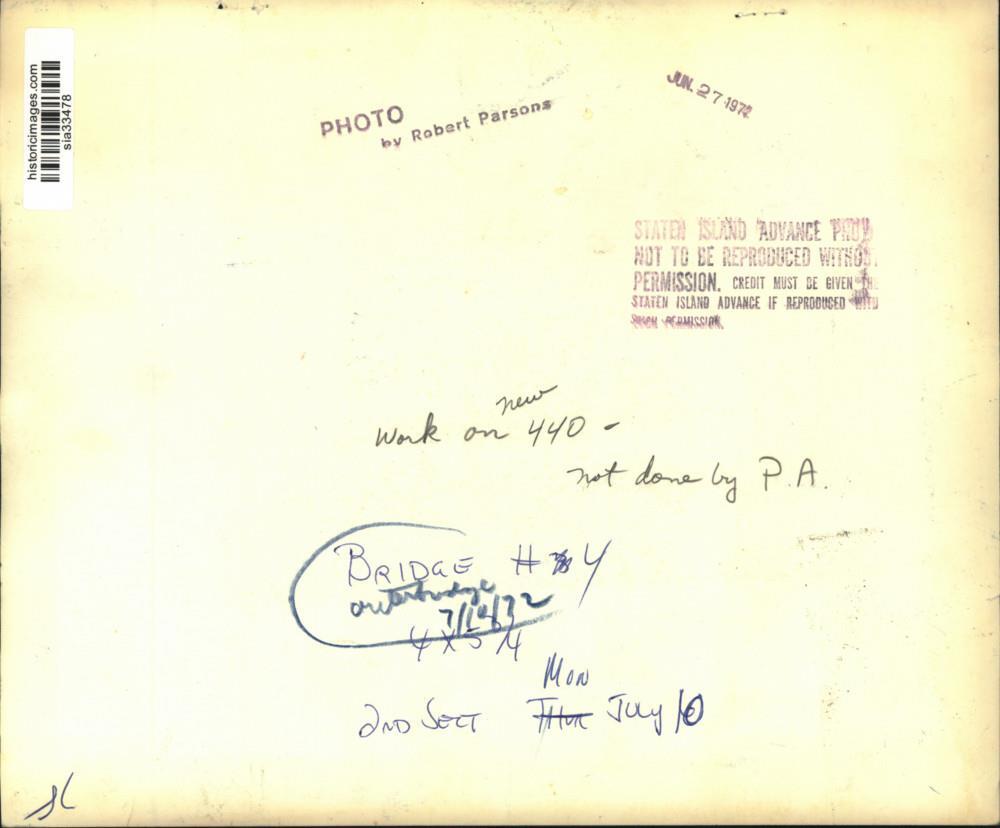 historicimages.com
sia33478
PHOTO
by Robert Parsons
JUN. 27 1972
STATEN ISLAND ADVANCE PHO
NOT TO BE REPRODUCED WITHOUT
PERMISSION. CREDIT MUST BE GIVEN THE
STATEN ISLAND ADVANCE IF REPRODUCED WITH
SUCH PERMISSION.
new
Work on 440 -
not done by P.A.
BRIDGE # 4
outerbridge
7/10/72
4 X
2ND SECT
Mon
Thur July 10